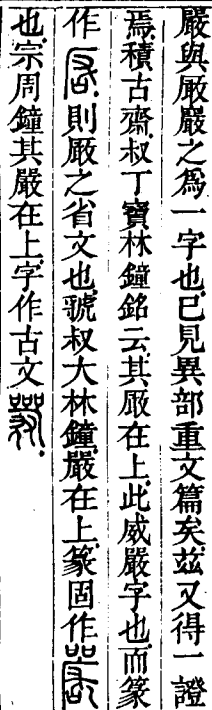 嚴與厰巖之爲一字也已見異部重文篇矣茲又得一證
焉積古齋叔丁寶林鐘銘云其厰在上此威嚴字也而篆
作則厰之省文也虢叔大林鐘嚴在上篆固作
也宗周鐘其嚴在上字作古文